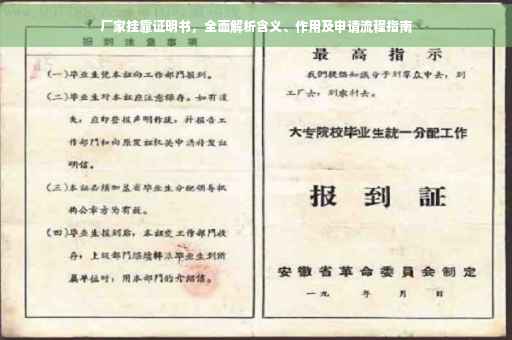 厂家挂靠证明书，全面解析含义、作用及申请流程指南
报到注意事项
(一)毕业生凭本证向工作部门报到。
(二)毕业生对本证应注意保存。如有遗
失，应即登报声明作废，并报告工
作部门和向原发证机关申请补发证
明信。
(三)本证必须加盖省毕业生分配领导机
构公章方为有效。
(四)毕业生报到后，本证交工作部门收
存；上级部门
毕业生到所
属单位时，用本部门的介绍信。
最高指示
我们提倡知识分子到群众中去，到
工厂去，到农村去。
大专院校毕业生统一分配工作
报到证
安徽省革命委员会制定
一九 年 月 日